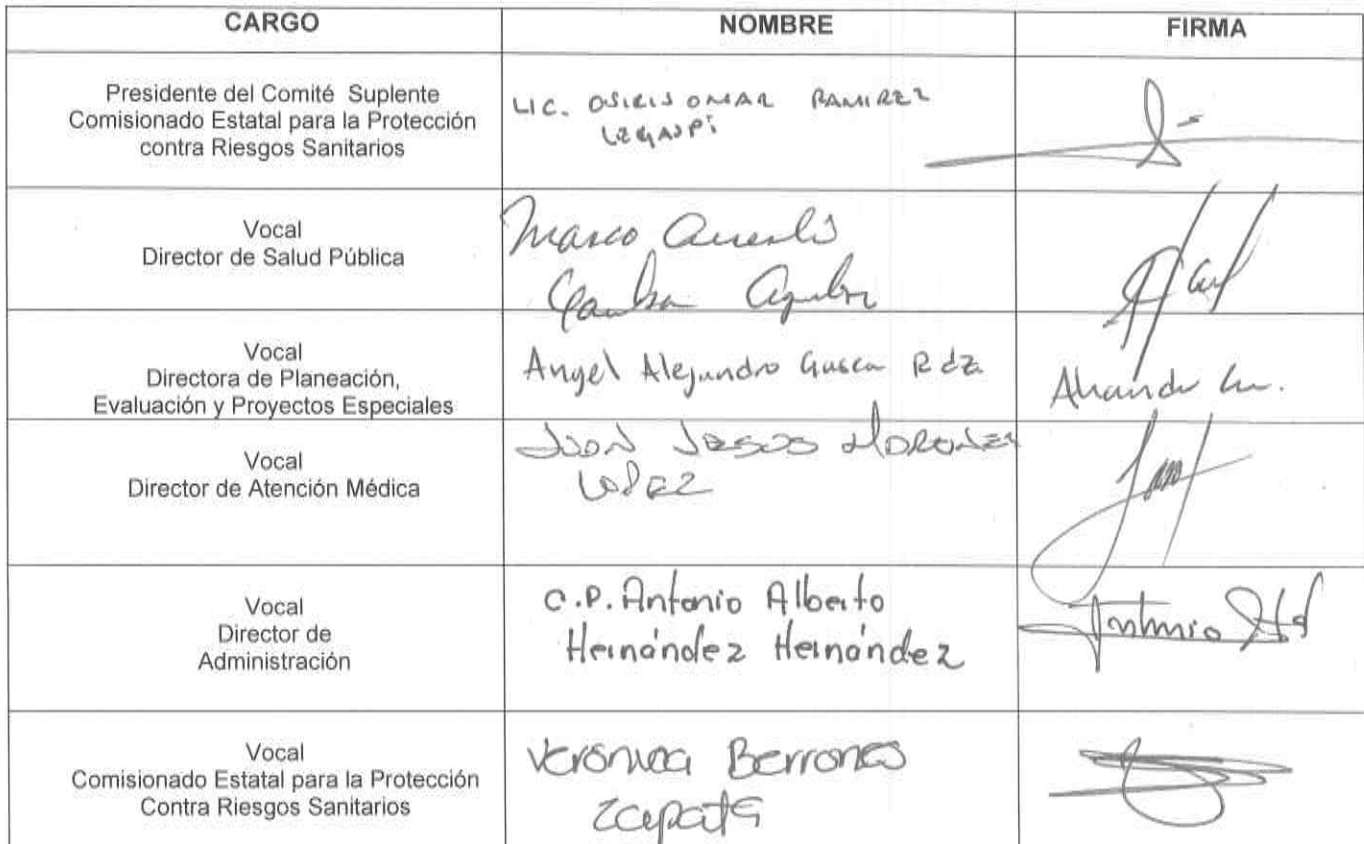 CARGO NOMBRE FIRMA
Presidente del Comité Suplente
Comisionado Estatal para la Protección
contra Riesgos Sanitarios
LIC. OSIRIS OMAR RAMIREZ
LEGASPi
Vocal
Director de Salud Pública
Marco Aurelio
Vocal
Directora de Planeación,
Evaluación y Proyectos Especiales
Angel Alejandro Gasca Rdz
Vocal
Director de Atención Médica
JUAN JESUS MORONES
LOPEZ
Vocal
Director de
Administración
C.P. Antonio Alberto
Hernández Hernández
Antonio
Vocal
Comisionado Estatal para la Protección
Contra Riesgos Sanitarios
Verónica Berrones
Zapata